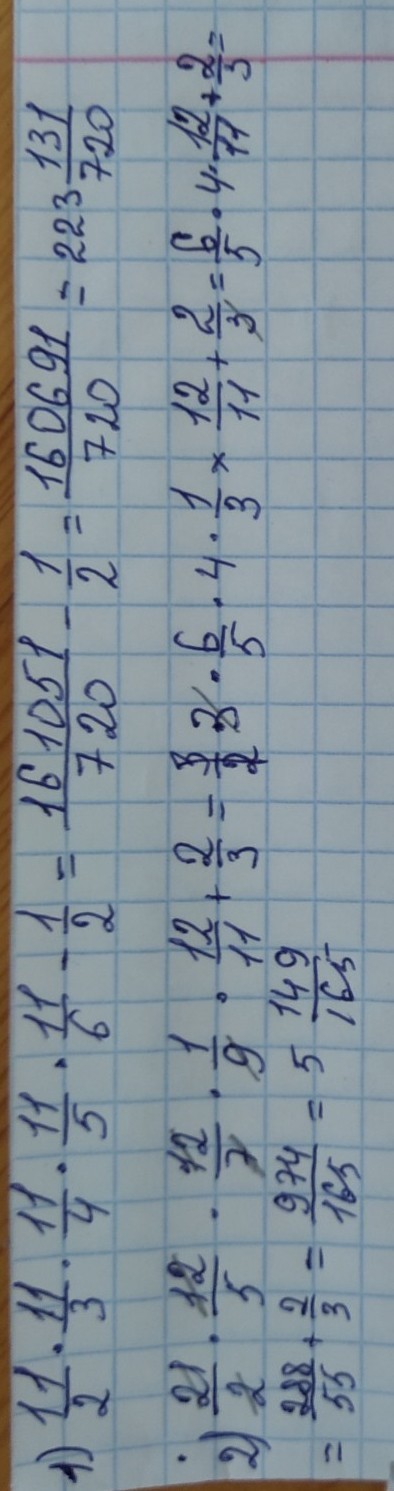 1) 11/2 · 11/3 · 11/4 · 11/5 · 11/6 - 1/2 = 161051/720 - 1/2 = 160691/720 = 223 131/720
2) 21/2 · 12/5 · 12/7 · 1/9 · 12/11 + 2/3 = 3 · 6/5 · 4 · 1/3 × 12/11 + 2/3 = 6/5 · 4 · 12/11 + 2/3 =
= 288/55 + 2/3 = 974/165 = 5 149/165